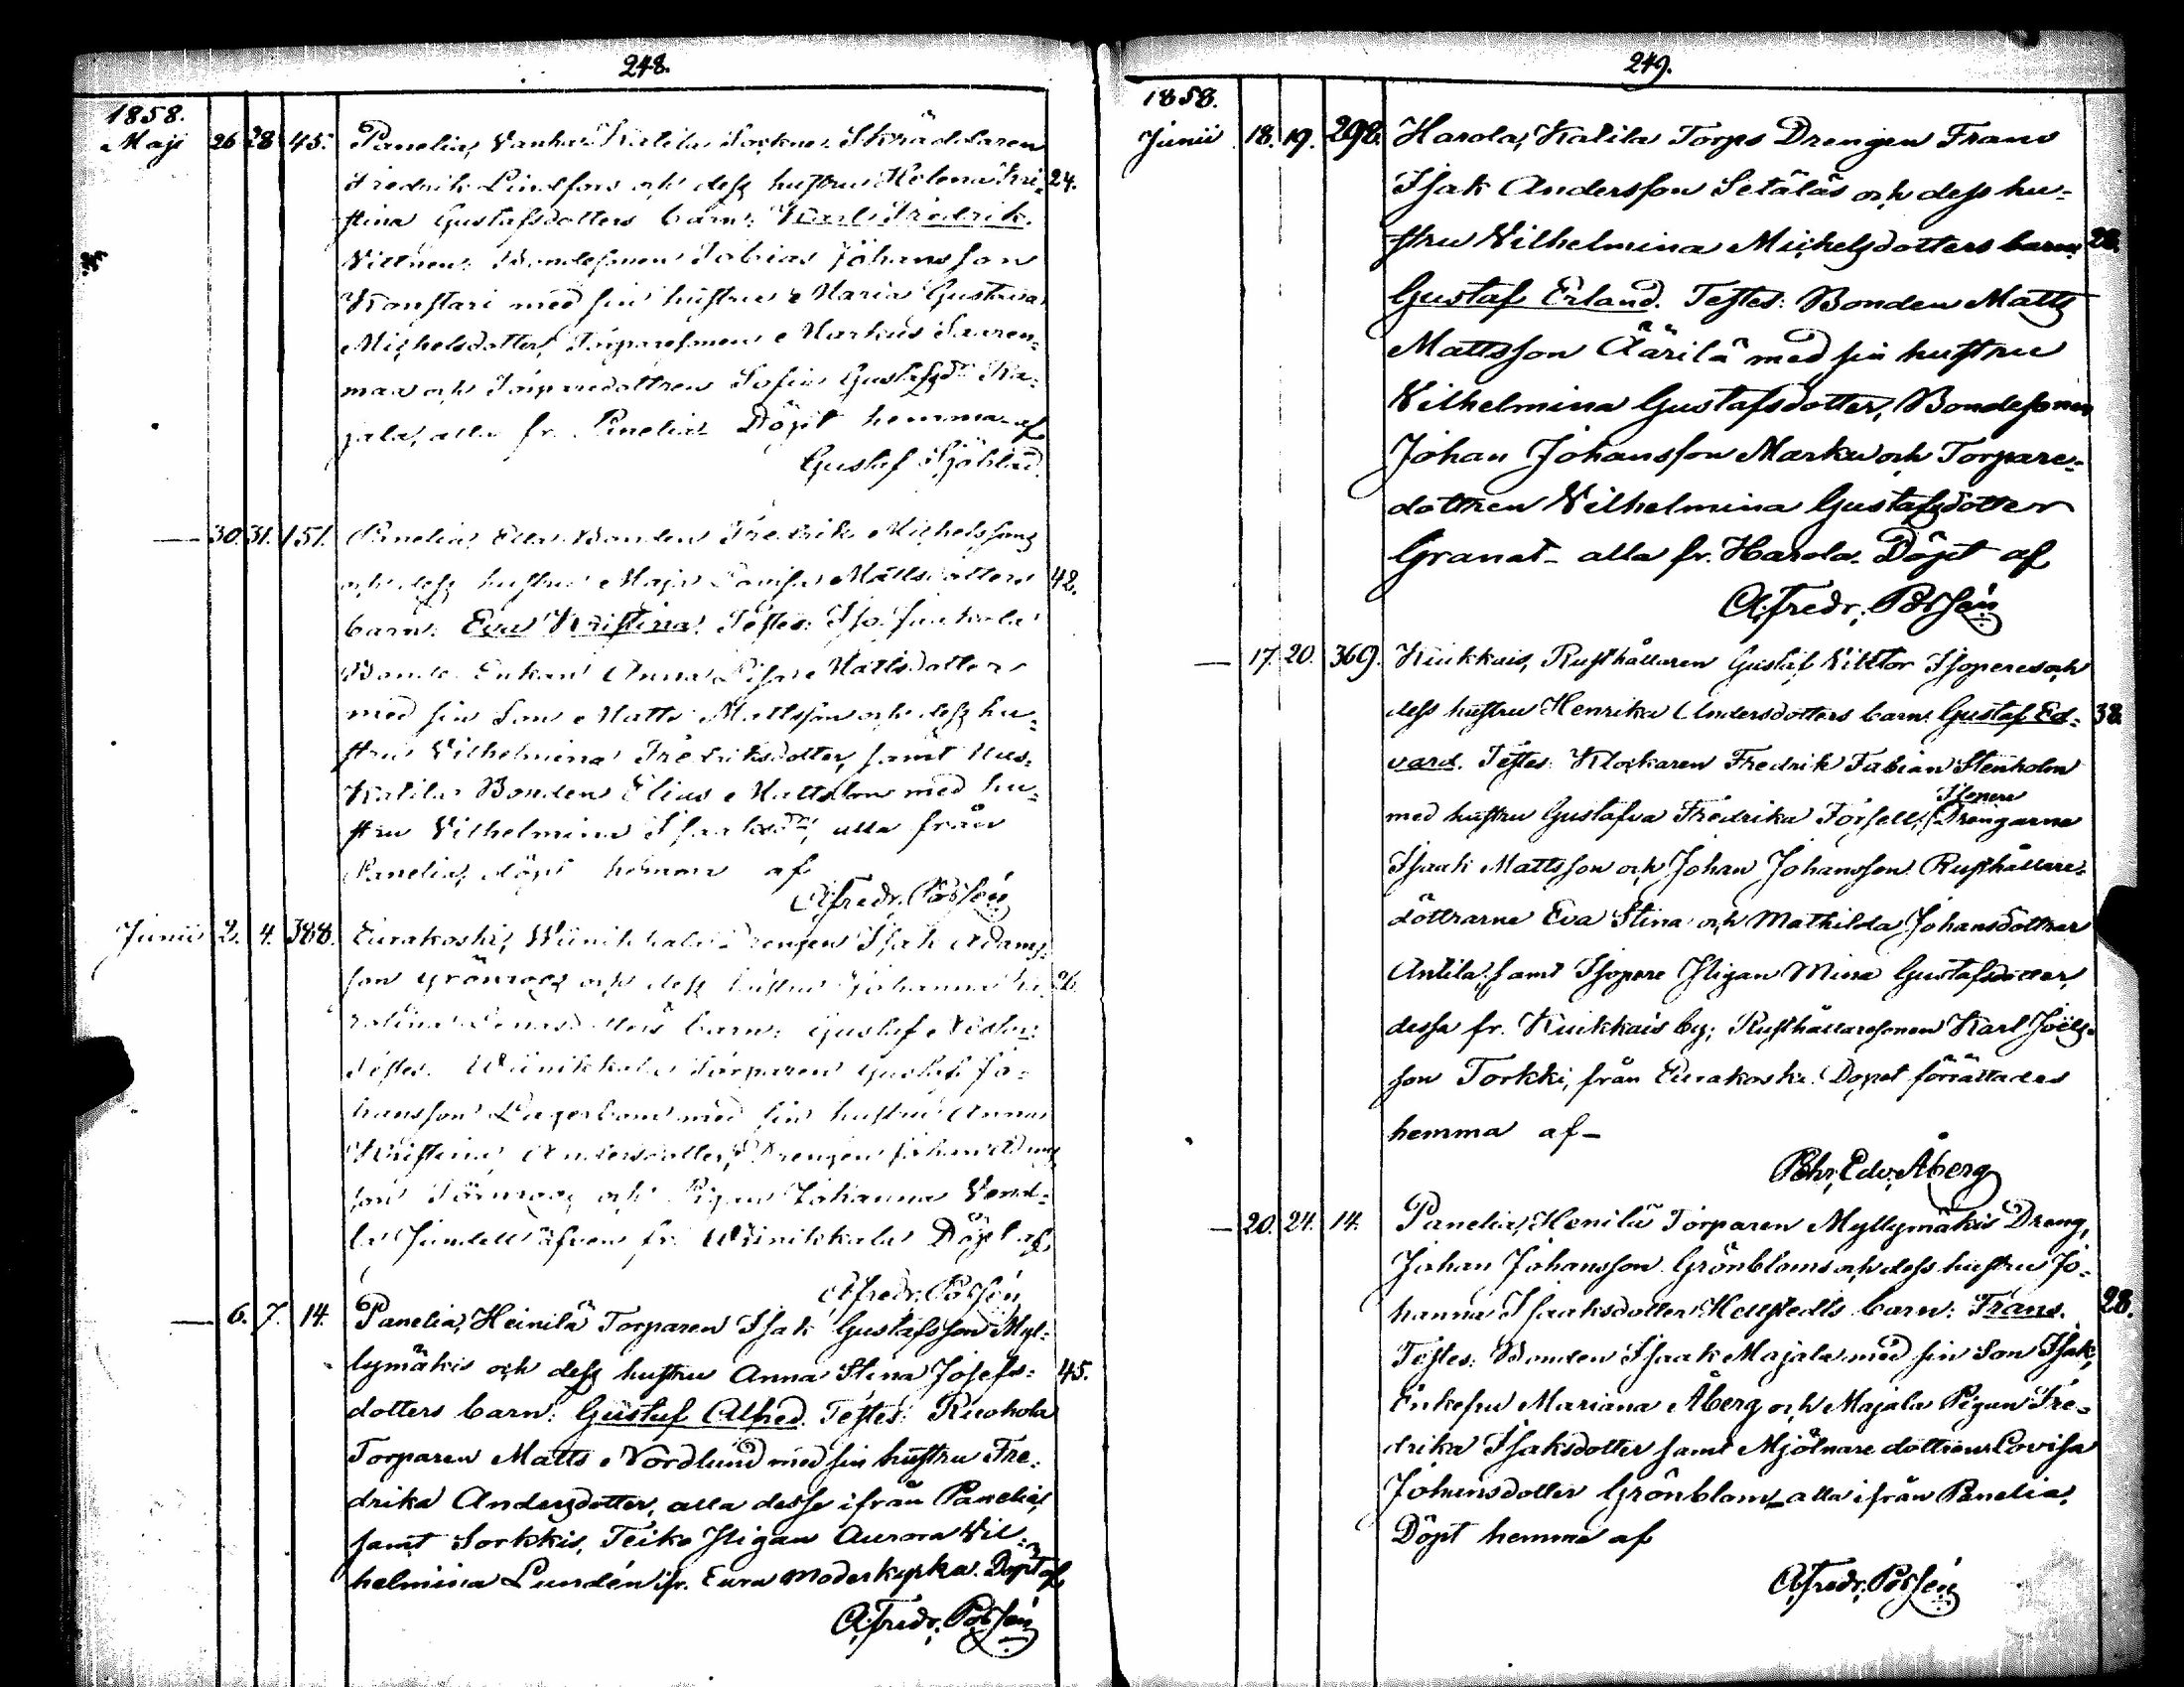 248.
1858.
Maji 26 28 45. Panelia, Vanha Katila Sockne Skräddaren
Fredrik Lindfors och dess hustru Helena Kri= 24.
stina Gustafsdotters barn: Karl Fredrik.
Vittnen: Bondesonen Tobias Johansson
Konstari med sin hustru Maria Gustava
Michelsdotter, Torparesonen Markus Sauren=
maa och Torparedottren Sofia Gustafsdr Ka=
jala, alla fr. Panelia. Döpt hemma af
Gustaf Sjöblad.
— 30. 31. 151. Panelia, Ella Bonden Fredrik Michelssons
och dess hustru Maja Lovisa Mattsdotters 42.
barn: Eva Kristina. Testes: Iso
Bonde Enkan Anna Lisa Mattsdotter
med sin Son Matts Mattsson och dess hu=
stru Vilhelmina Fredriksdotter, samt Uus=
Katila Bonden Elias Mattsson med hu=
stru Vilhelmina Isaaksdr, alla från
Panelia, döpt hemma af
A. Fredr. Polsén
Junii 2. 4. 388. Eurakoski, Wiinikkala Drengen Isak Adams=
son Grönroos och dess hustru Johanna Ka= 26.
rolina barn: Gustaf
Testes. Wiinikkala Torparen Gustaf Jo=
hansson Lagerbom med sin hustru Anna
Kristina Andersdotter, Drengen Johan
son Törnroos och Pigan Johanna Vend=
la Sundell äfven fr. Wiinikkala Döpt af,
A. Fredr. Polsén
— 6. 7. 14. Panelia, Heinilä Torparen Isak Gustafsson Myl=
lymäkis och dess hustru Anna Stina Josefs= 45.
dotters barn: Gustaf Alfred. Testes: Ruohola
Torparen Matts Nordlund med sin hustru Fre=
drika Andersdotter, alla desse ifrån Panelia,
samt Sorkkis, Teiko Pigan Aurora Vil=
helmina Lundén ifr. Eura moderkyrka. Döpt af,
A. Fredr. Polsén
249.
1858.
Junii 18. 19. 298. Harola, Katila Torps Drengen Frans
Isak Andersson Setäläs och dess hu=
stru Vilhelmina Michelsdotters barn: 28.
Gustaf Erland. Testes: Bonden Matts
Mattsson Äärilä med sin hustru
Vilhelmina Gustafsdotter, Bondesonen
Johan Johansson Markus och Torpare=
dottren Vilhelmina Gustafsdotter
Granat alla fr. Harola. Döpt af
A. Fredr. Polsén
— 17. 20. 369. Kiukkais, Rusthållaren Gustaf Viktor Isoperes och
dess hustru Henrika Andersdotters barn: Gustaf Ed= 38.
vard. Testes: Klockaren Fredrik Fabian Stenholm
med hustru Gustafva Fredrika Forsell, Isopere Drengarne
Isaak Mattsson och Johan Johansson. Rusthållare=
döttrarne Eva Stina och Mathilda Johansdöttrar
Antila, samt Isopere Pigan Mina Gustafsdotter,
dessa fr. Kiukkais by; Rusthållaresonen Karl Joëls=
son Torkki, från Eurakoski. Dopet förrättades
hemma af —
Pehr. Edv. Åberg
— 20. 24. 14. Panelia, Heinilä Torparen Myllymäkis Dreng,
Johan Johansson Grönbloms och dess hustru Jo=
hanna Isaaksdotter Hellstedts barn: Frans. 28.
Testes: Bonden Isaak Majala med sin Son Isak,
Enkefru Mariana Åberg och Majala Pigan Fre=
drika Isaksdotter samt Mjölnare dottren Lovisa
Johansdotter Grönblom alla ifrån Panelia.
Döpt hemma af
A. Fredr. Polsén